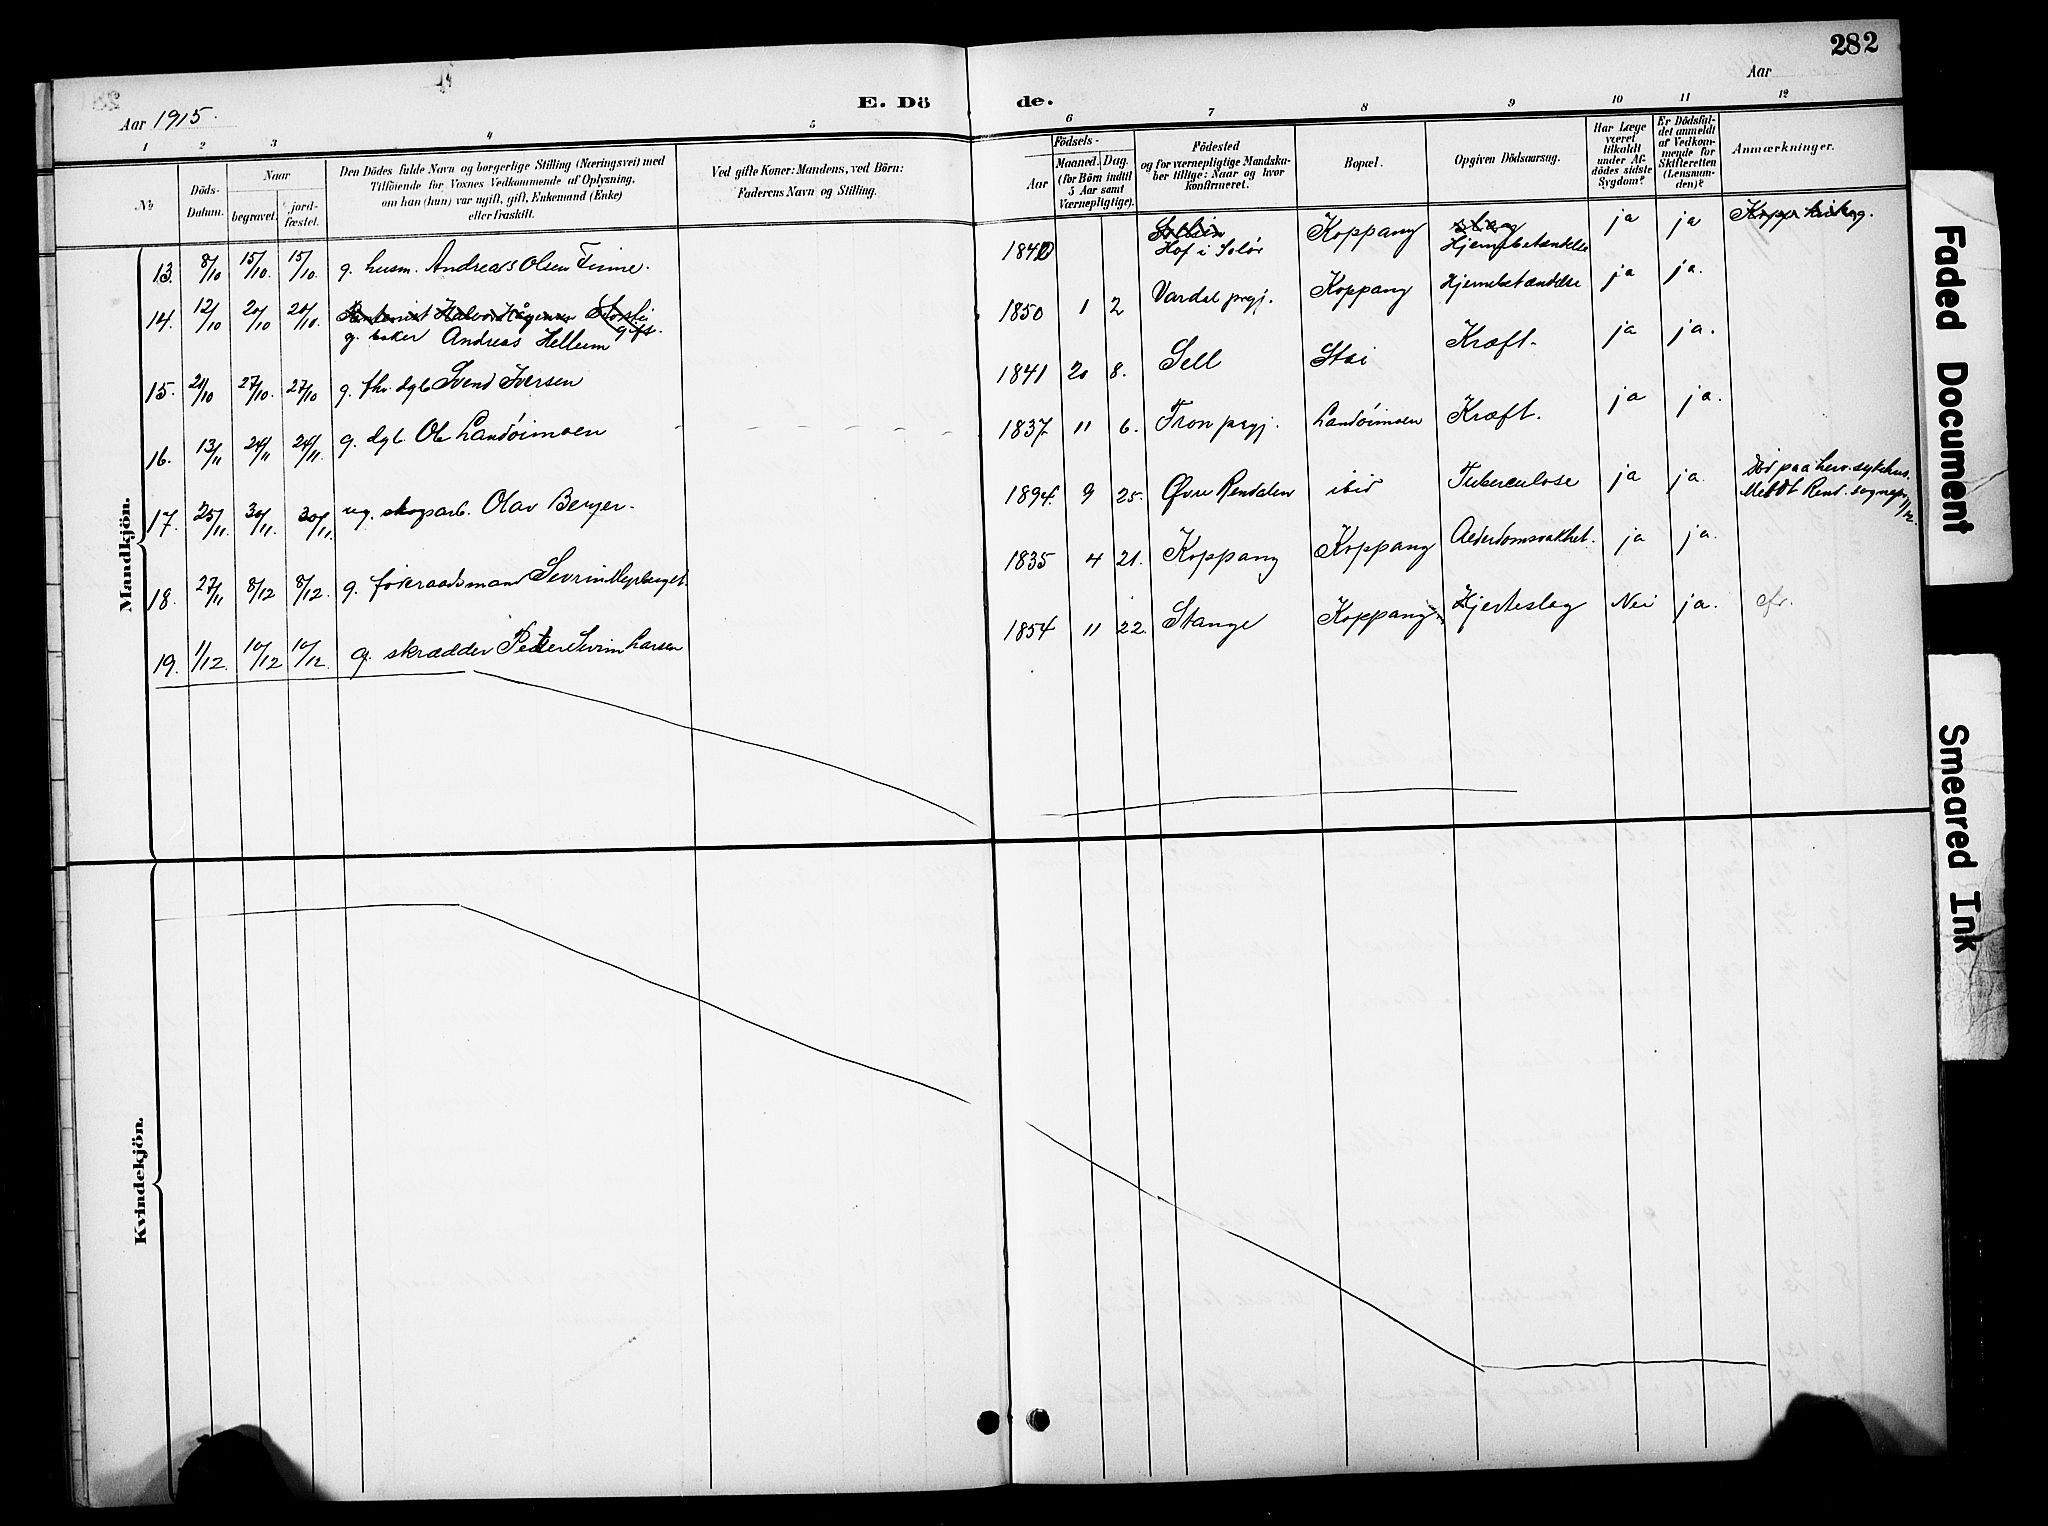 282
Aar 1915.
E. Dö de.
Aar
1 2 3 4 5 6 7 8 9 10 11 12
No
Döds-Datum.
Naar
begravet.
jord-fæstet.
Den Dödes fulde Navn og borgerlige Stilling (Næringsvei) med
Tilföiende for Voxnes Vedkommende af Oplysning,
om han (hun) var ugift, gift, Enkemand (Enke)
eller fraskilt.
Ved gifte Koner: Mandens, ved Börn:
Faderens Navn og Stilling.
Födsels-
Aar
Maaned. Dag.
(for Börn indtil
5 Aar samt
Værnepligtige).
Födested
og for værnepligtige Mandska-
ber tillige: Naar og hvor
konfirmeret.
Bopæl.
Opgiven Dödsaarsag.
Har Læge
været
tilkaldt
under Af-
dödes sidste
Sygdom?
Er Dödsfal-
det anmeldt
af Vedkom-
mende for
Skifteretten
(Lensman-
den)?
Anmærkninger.
Mandkjön.
13. 8/10 15/10. 15/10. g. husm. Andreas Olsen Finne. Hof i Solör Koppang Hjernebetændelse ja ja
14. 12/10 20/10 20/10. g. baker Andreas Helleum 1850 1 2 Vardal prgj. Koppang Hjernebetændelse ja ja.
15. 21/10 27/10. 27/10 g. fhv. dgb Svend Iversen 1841 20 8. Sell Stai Kræft. ja ja.
16. 13/11 24/11 24/11. g. dgb. Ole Landöimoen 1837 11 6. Tron prgj. Landöimoen Kræft. ja ja.
17. 25/11. 30/11. 30/11. ug. skogarb. Olav Berger. 1894 9 25. Øvre Rendalen ibid Tuberculose ja ja. Död paa herv. sykehus.
Meldt Rend. sognepr. 1/12.
18. 27/11 8/12 8/12. g. föderaadsmand Sevrin Myrberget. 1835 4 21. Koppang Koppang Alderdomsvakhet. ja ja.
19. 1/12. 10/12 10/12. g. skrædder Peter Sevrin Larsen 1854 11 22. Stange Koppang Hjerteslag Nei ja. cfr.
Kvindekjön.
Faded Document
Smeared Ink